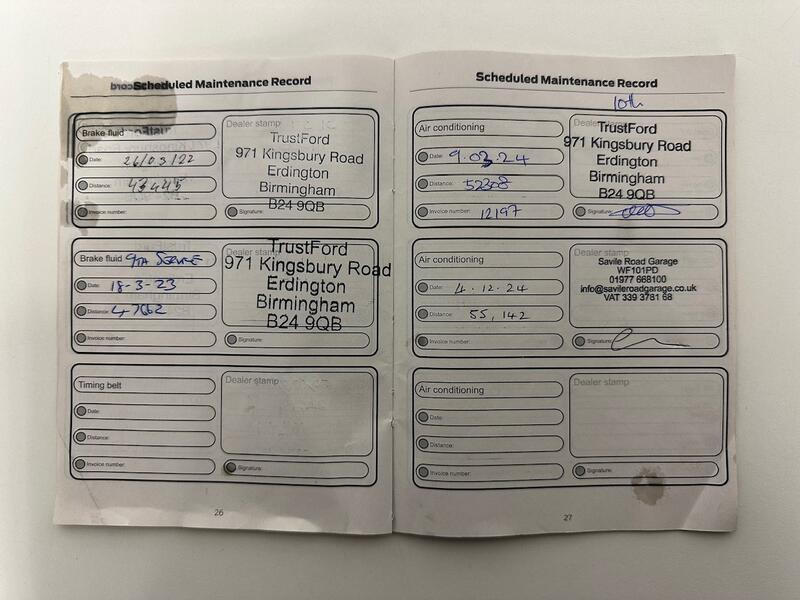 Scheduled Maintenance Record
Brake fluid
Date: 26/03/22
Distance: 43445
Invoice number:
Dealer stamp
TrustFord
971 Kingsbury Road
Erdington
Birmingham
B24 9QB
Signature:
Brake fluid 9TH SERVICE
Date: 18-3-23
Distance: 47662
Invoice number:
TrustFord
971 Kingsbury Road
Erdington
Birmingham
B24 9QB
Signature:
Timing belt
Date:
Distance:
Invoice number:
Dealer stamp
Signature:
26
Scheduled Maintenance Record
10th
Air conditioning
Date: 9.03.24
Distance: 52308
Invoice number: 12197
Dealer stamp
TrustFord
971 Kingsbury Road
Erdington
Birmingham
B24 9QB
Signature:
Air conditioning
Date: 4.12.24
Distance: 55,142
Invoice number:
Dealer stamp
Savile Road Garage
WF101PD
01977 668100
info@savileroadgarage.co.uk
VAT 339 3781 68
Signature:
Air conditioning
Date:
Distance:
Invoice number:
Dealer stamp
Signature:
27